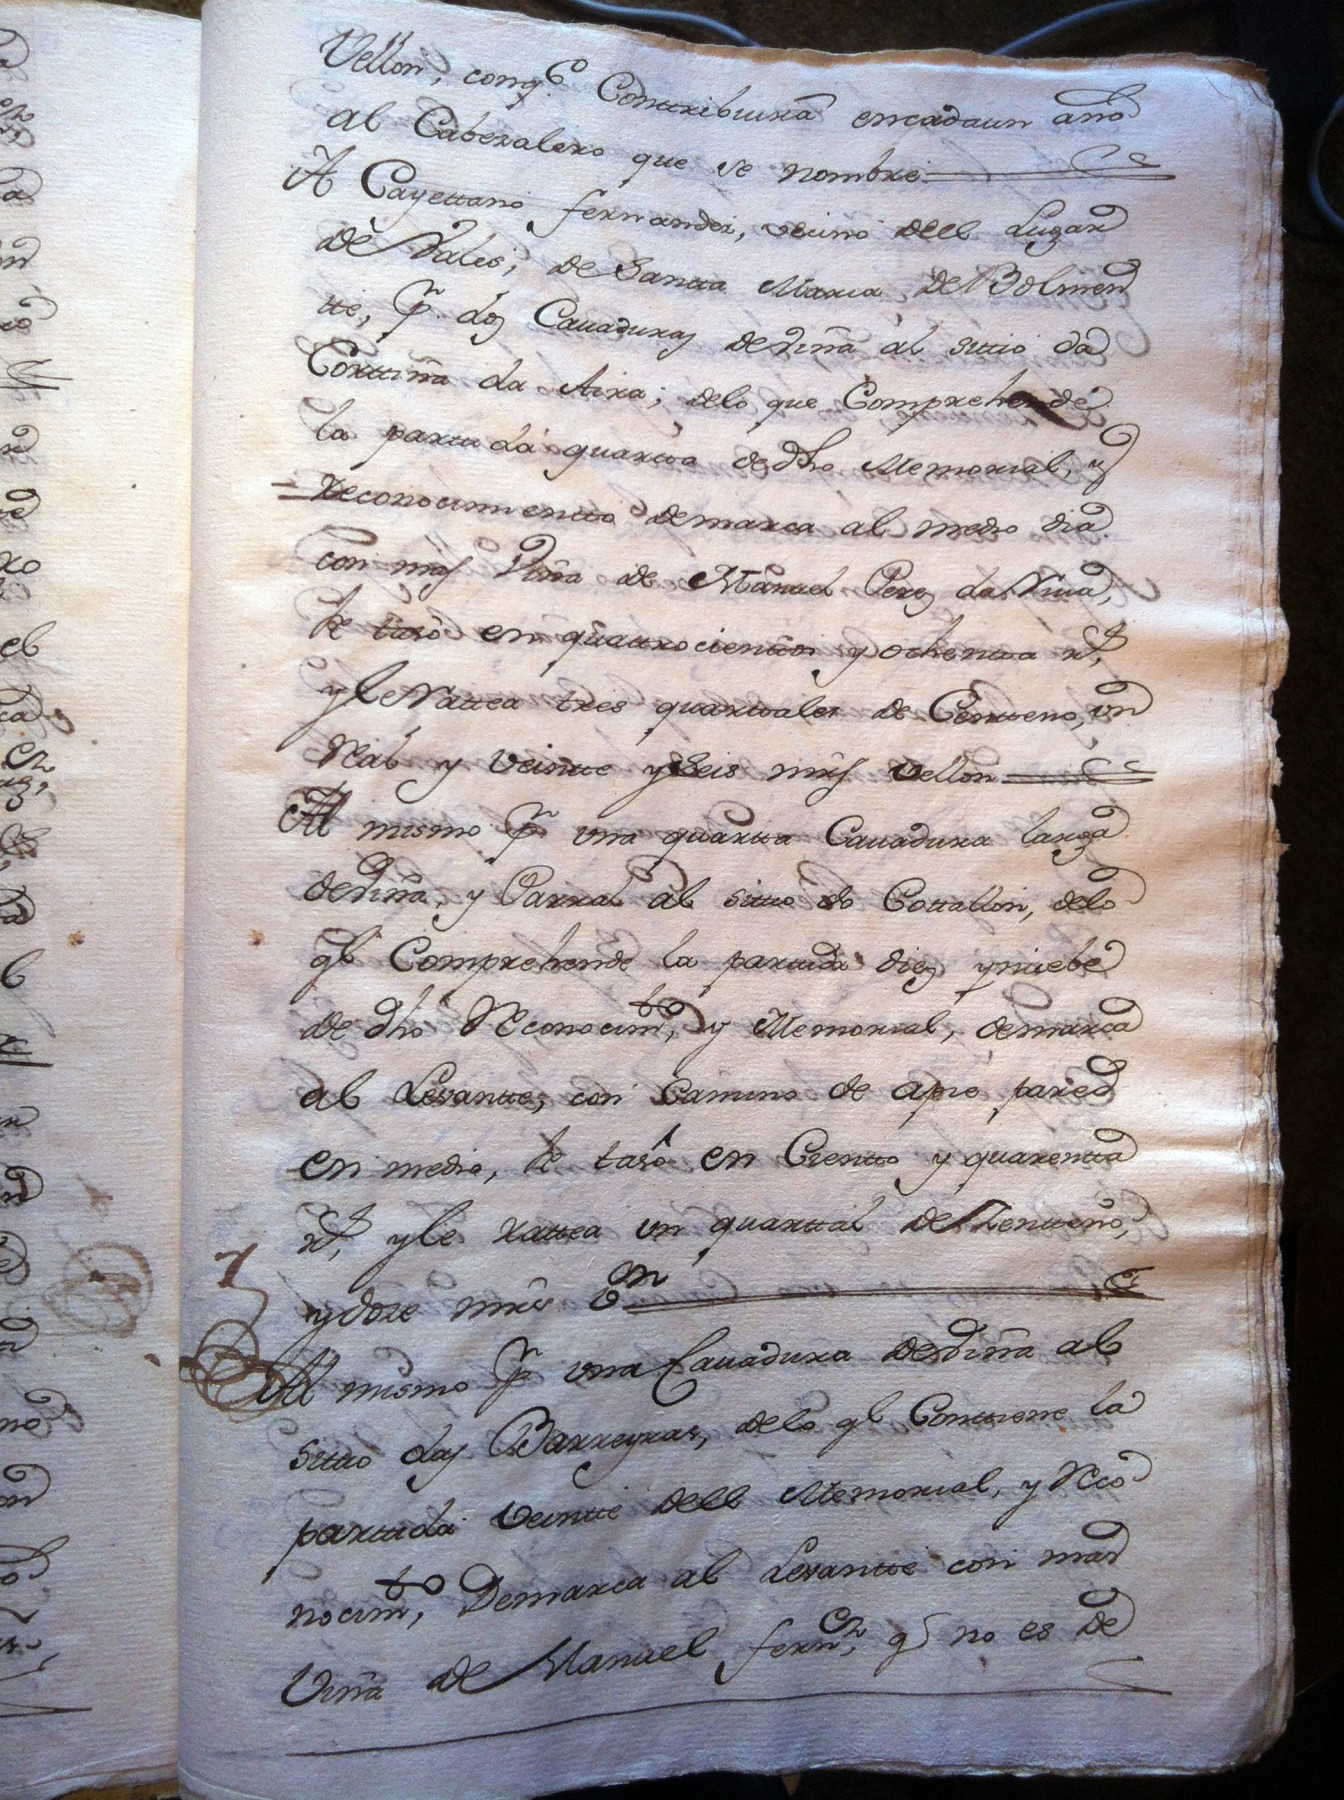 Vellon, conq.e Contribuira encadaun año
al Cabezalero que se nombre
A Cayettano fernandez, vecino dell Lugar
de Vales, de Santta Maria de Bolmen
tte, Pr. dos Cauaduras deviña al sittio da
Corttiña da Aira; delo que Comprehende
la partida quartta de dho Memorial, y
Reconocimientto demarca al medio dia
con mas Viña de Manuel Perez da
se taso en quattrocienttos y ochentta rs,
y le Rattea tres quarttales de Centteno, un
Real y veintte y seis mrs vellon
Al mismo Pr una quartta Cauadura larga
deviña, y Parral al sittio do Cottallon, delo
ql Comprehende la partida diez y nuebe
de dho Reconocimto, y Memorial, demarca
al Levantte, con Camino de apie, pared
en medio, se tasô en Cientto y quarentta
rs, y le rattea un quarttal de Zentteno,
y doze mrs Vn
Al mismo Pr una Cauadura deviña al
sittio das Barreyras, delo ql Conttiene la
partida veintte dell Memorial, y Reco
nocimto, Demarca al Levantte con mas
Viña de Manuel fernz, q no es de